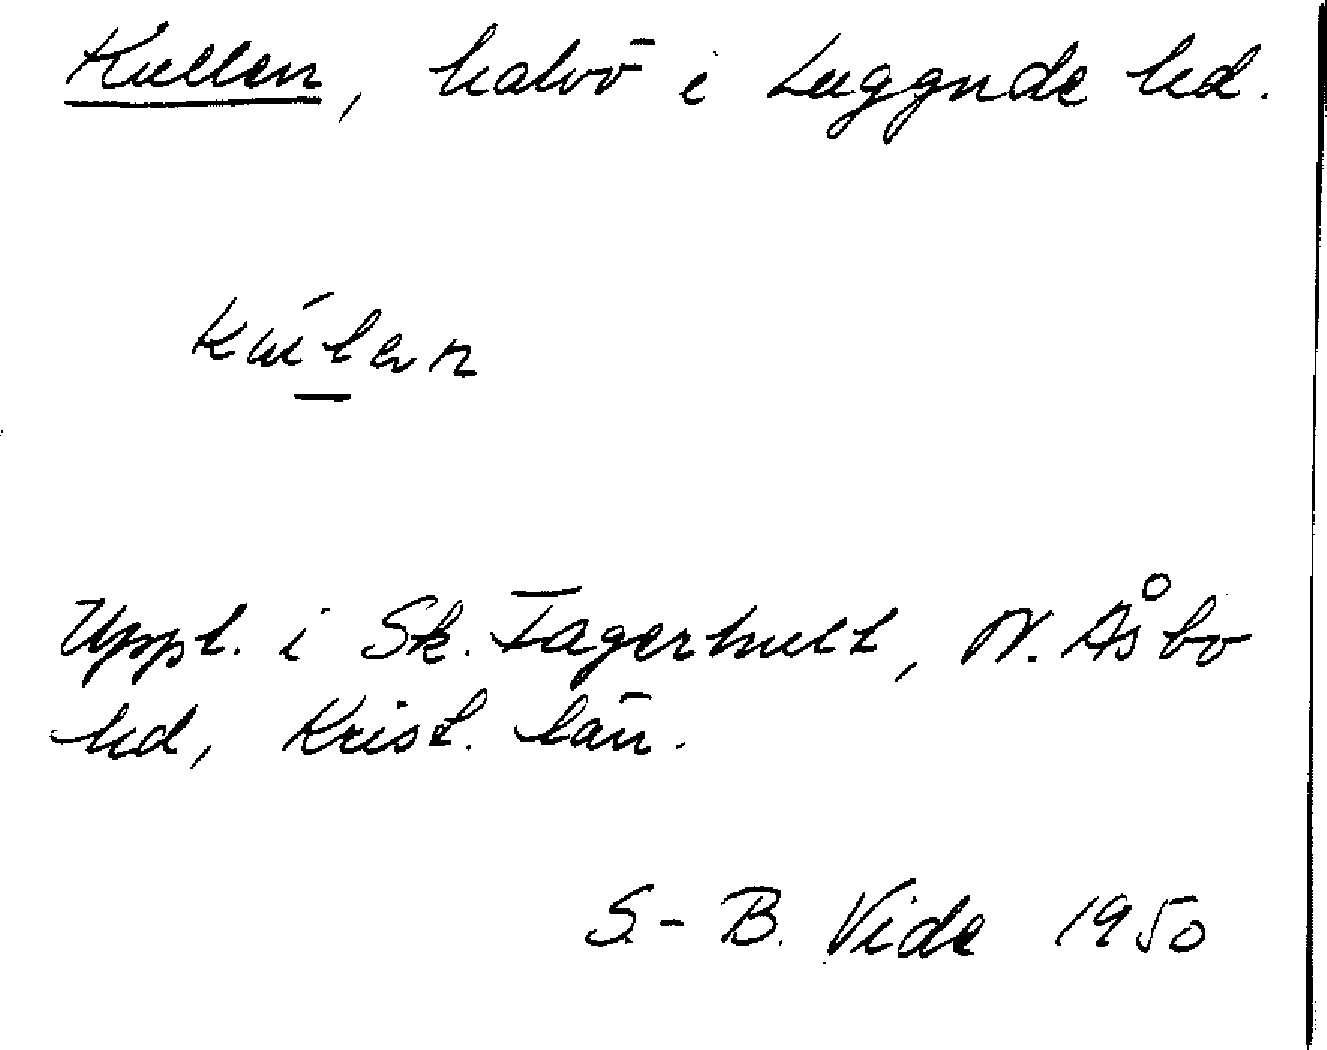 Kullen, halvö i Luggude hd.
Uppt. i Sk. Fagerhult, N. Åsbo
hd, Krist. län.
S.-B. Vide 1950